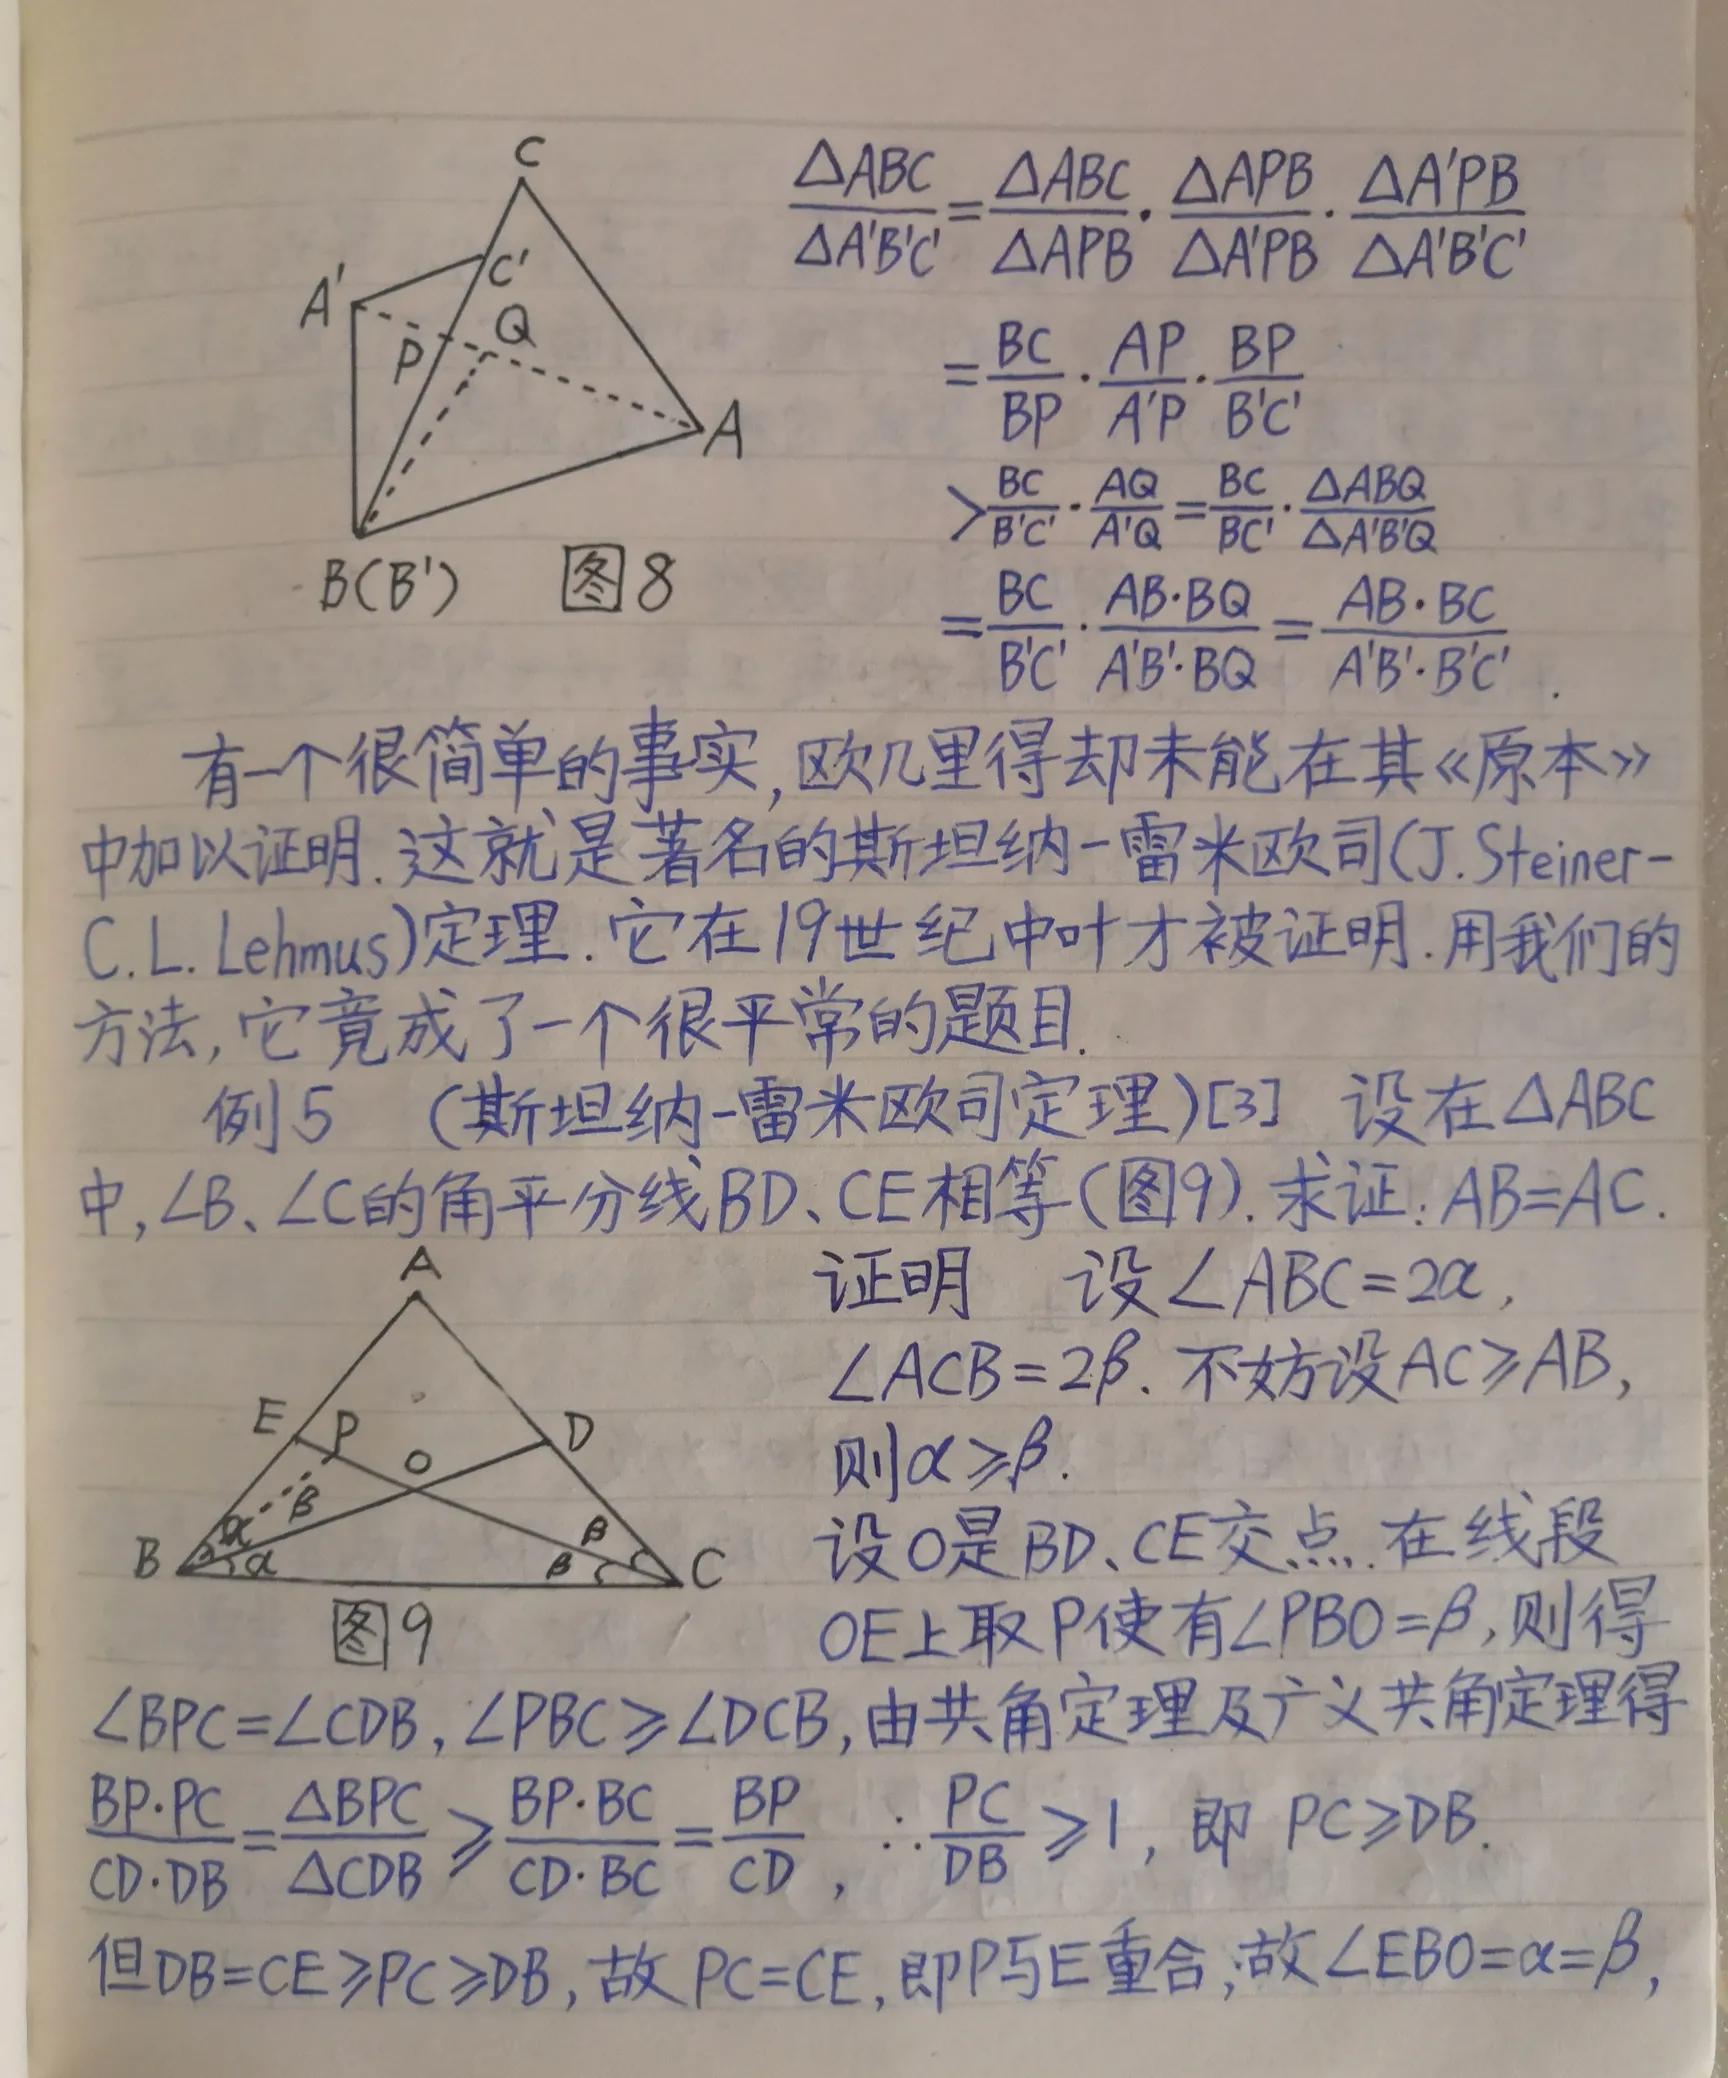 C
A'
C'
Q
P
A
B(B')
图8
△ABC/△A'B'C' = △ABC/△APB · △APB/△A'PB · △A'PB/△A'B'C'
= BC/BP · AP/A'P · BP/B'C'
> BC/B'C' · AQ/A'Q = BC/BC' · △ABQ/△A'B'Q
= BC/B'C' · AB·BQ/A'B'·BQ = AB·BC/A'B'·B'C' .
有一个很简单的事实,欧几里得却未能在其《原本》
中加以证明.这就是著名的斯坦纳-雷米欧司(J.Steiner-
C.L.Lehmus)定理.它在19世纪中叶才被证明.用我们的
方法,它竟成了一个很平常的题目.
例5 (斯坦纳-雷米欧司定理)[3] 设在△ABC
中,∠B、∠C的角平分线BD、CE相等(图9).求证:AB=AC.
A
E
P
O
D
β
α
B
α
β
β
C
图9
证明 设∠ABC=2α,
∠ACB=2β.不妨设AC≥AB,
则α≥β.
设O是BD、CE交点.在线段
OE上取P使有∠PBO=β,则得
∠BPC=∠CDB,∠PBC≥∠DCB,由共角定理及广义共角定理得
BP·PC/CD·DB = △BPC/△CDB ≥ BP·BC/CD·BC = BP/CD , ∴ PC/DB ≥1, 即 PC≥DB.
但DB=CE≥PC≥DB,故PC=CE,即P与E重合,故∠EBO=α=β,